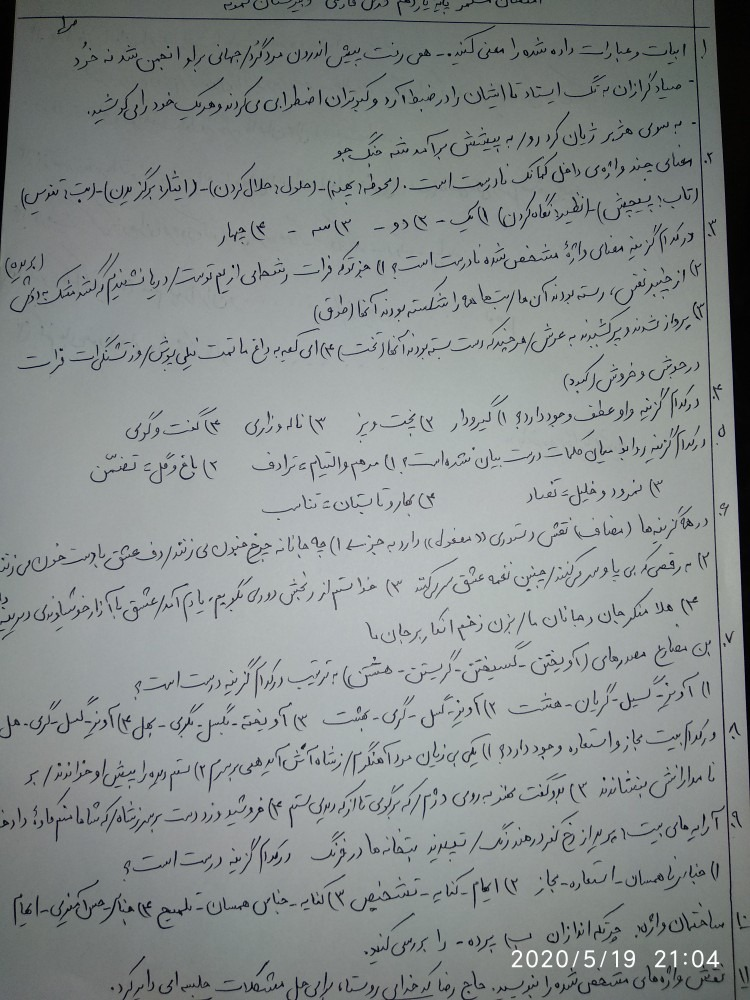 امتحان مستمر پایه یازدهم درس فارسی دبیرستان نمونه
۱. ابیات و عبارات داده شده را معنی کنید. - همی رفت پیش اندرون مرد گُرد/ جهانی بر او انجمن شد نه خُرد
- صیاد گرازان به تگ ایستاد تا ایشان را در ضبط آرد و کبوتران اضطرابی می کردند و هر یک خود را می کوشید.
- به سوی هژبر ژیان کرد رو/ به پیشش برآمد شه جنگ جو
۲. معنای چند واژه ی داخل کمانک نادرست است. (محوطه: پهنه) - (حلول: حلال کردن) - (ایثار: برگزیدن) -
(تاب: پیچش) - (نظیر: نگاه کردن) ۱) یک - ۲) دو - ۳) سه - ۴) چهار
۳. در کدام گزینه معنای واژهٔ مشخص شده نادرست است؟ ۱) جز تو که فرات رشحه ای از یم توست/ دریا نشنیدم که کشد مشک به دوش
۲) از چنبر نفس، رسته بودند آن ها/ بت ها همه را شکسته بودند آنها (طوق)
۳) پرواز شدند و پر کشیدند به عرش/ هر چند که دست بسته بودند آنها (تخت) ۴) ای کعبه به داغ ماتمت نیلی پوش/ وز تشنگی ات فرات
در جوش و خروش (کبود)
۴. در کدام گزینه واو عطف وجود دارد؟ ۱) گیر و دار ۲) پخت و پز ۳) ناله و زاری ۴) گفت و گوی
۵. در کدام گزینه روابط میان کلمات درست بیان نشده است؟ ۱) مرهم و التیام = ترادف ۲) باغ و گل = تضمّن
۳) نمرود و خلیل = تضاد ۴) بهار و تابستان = تناسب
۶. در همهٔ گزینه ها (مضاف) نقش دستوری «مفعول» دارد به جز: ۱) چه جانانه چرخ جنون می زنند/ دف عشق با دست خون می زنند
۲) به رقصی که بی پا و سر می کنند/ چنین نغمه عشق سر می کنند ۳) خواستم از رنجش دوری بگویم، یادم آمد/ عشق با آزار خویشاوندی دیرینه
۴) هلا منکر جان و جانان ما/ بزن زخم انکار بر جان ما
۷. بن مضارع مصدرهای (آویختن - گسیختن - گریستن - هشتن) به ترتیب در کدام گزینه درست است؟
۱) آویز - گسیل - گریان - هشت ۲) آویز - گسل - گری - بهشت ۳) آویخته - بگسل - بگری - بهل ۴) آویز - گسل - گری - هل
۸. در کدام بیت مجاز و استعاره وجود دارد؟ ۱) یکی بی زیان مرد آهنگرم/ ز شاه آتش آید همی بر سرم ۲) ستم دیده را پیش او خواندند/ بر
نامدارانش بنشاندند ۳) بدو گفت مهتر به روی دژم/ که برگوی تا از که دیدی ستم ۴) خروشید و زد دست بر سر ز شاه/ که شاها منم کاوهٔ دادخواه
۹. آرایه های بیت: پرید از رخ کفر در هند رنگ/ تپیدند بتخانه ها در فرنگ در کدام گزینه درست است؟
۱) جناس ناهمسان - استعاره - مجاز ۲) ایهام - کنایه - تشخیص ۳) کنایه - جناس همسان - تلمیح ۴) جناس - حس آمیزی - ایهام
۱۰. ساختمان واژه تیرانداز را بررسی کنید.
۱۱. نقش واژه های مشخص شده را بنویسید. حاج رضا کدخدای روستا، برای حل مشکلات جلسه ای دایر کرد.
2020/5/19 21:04